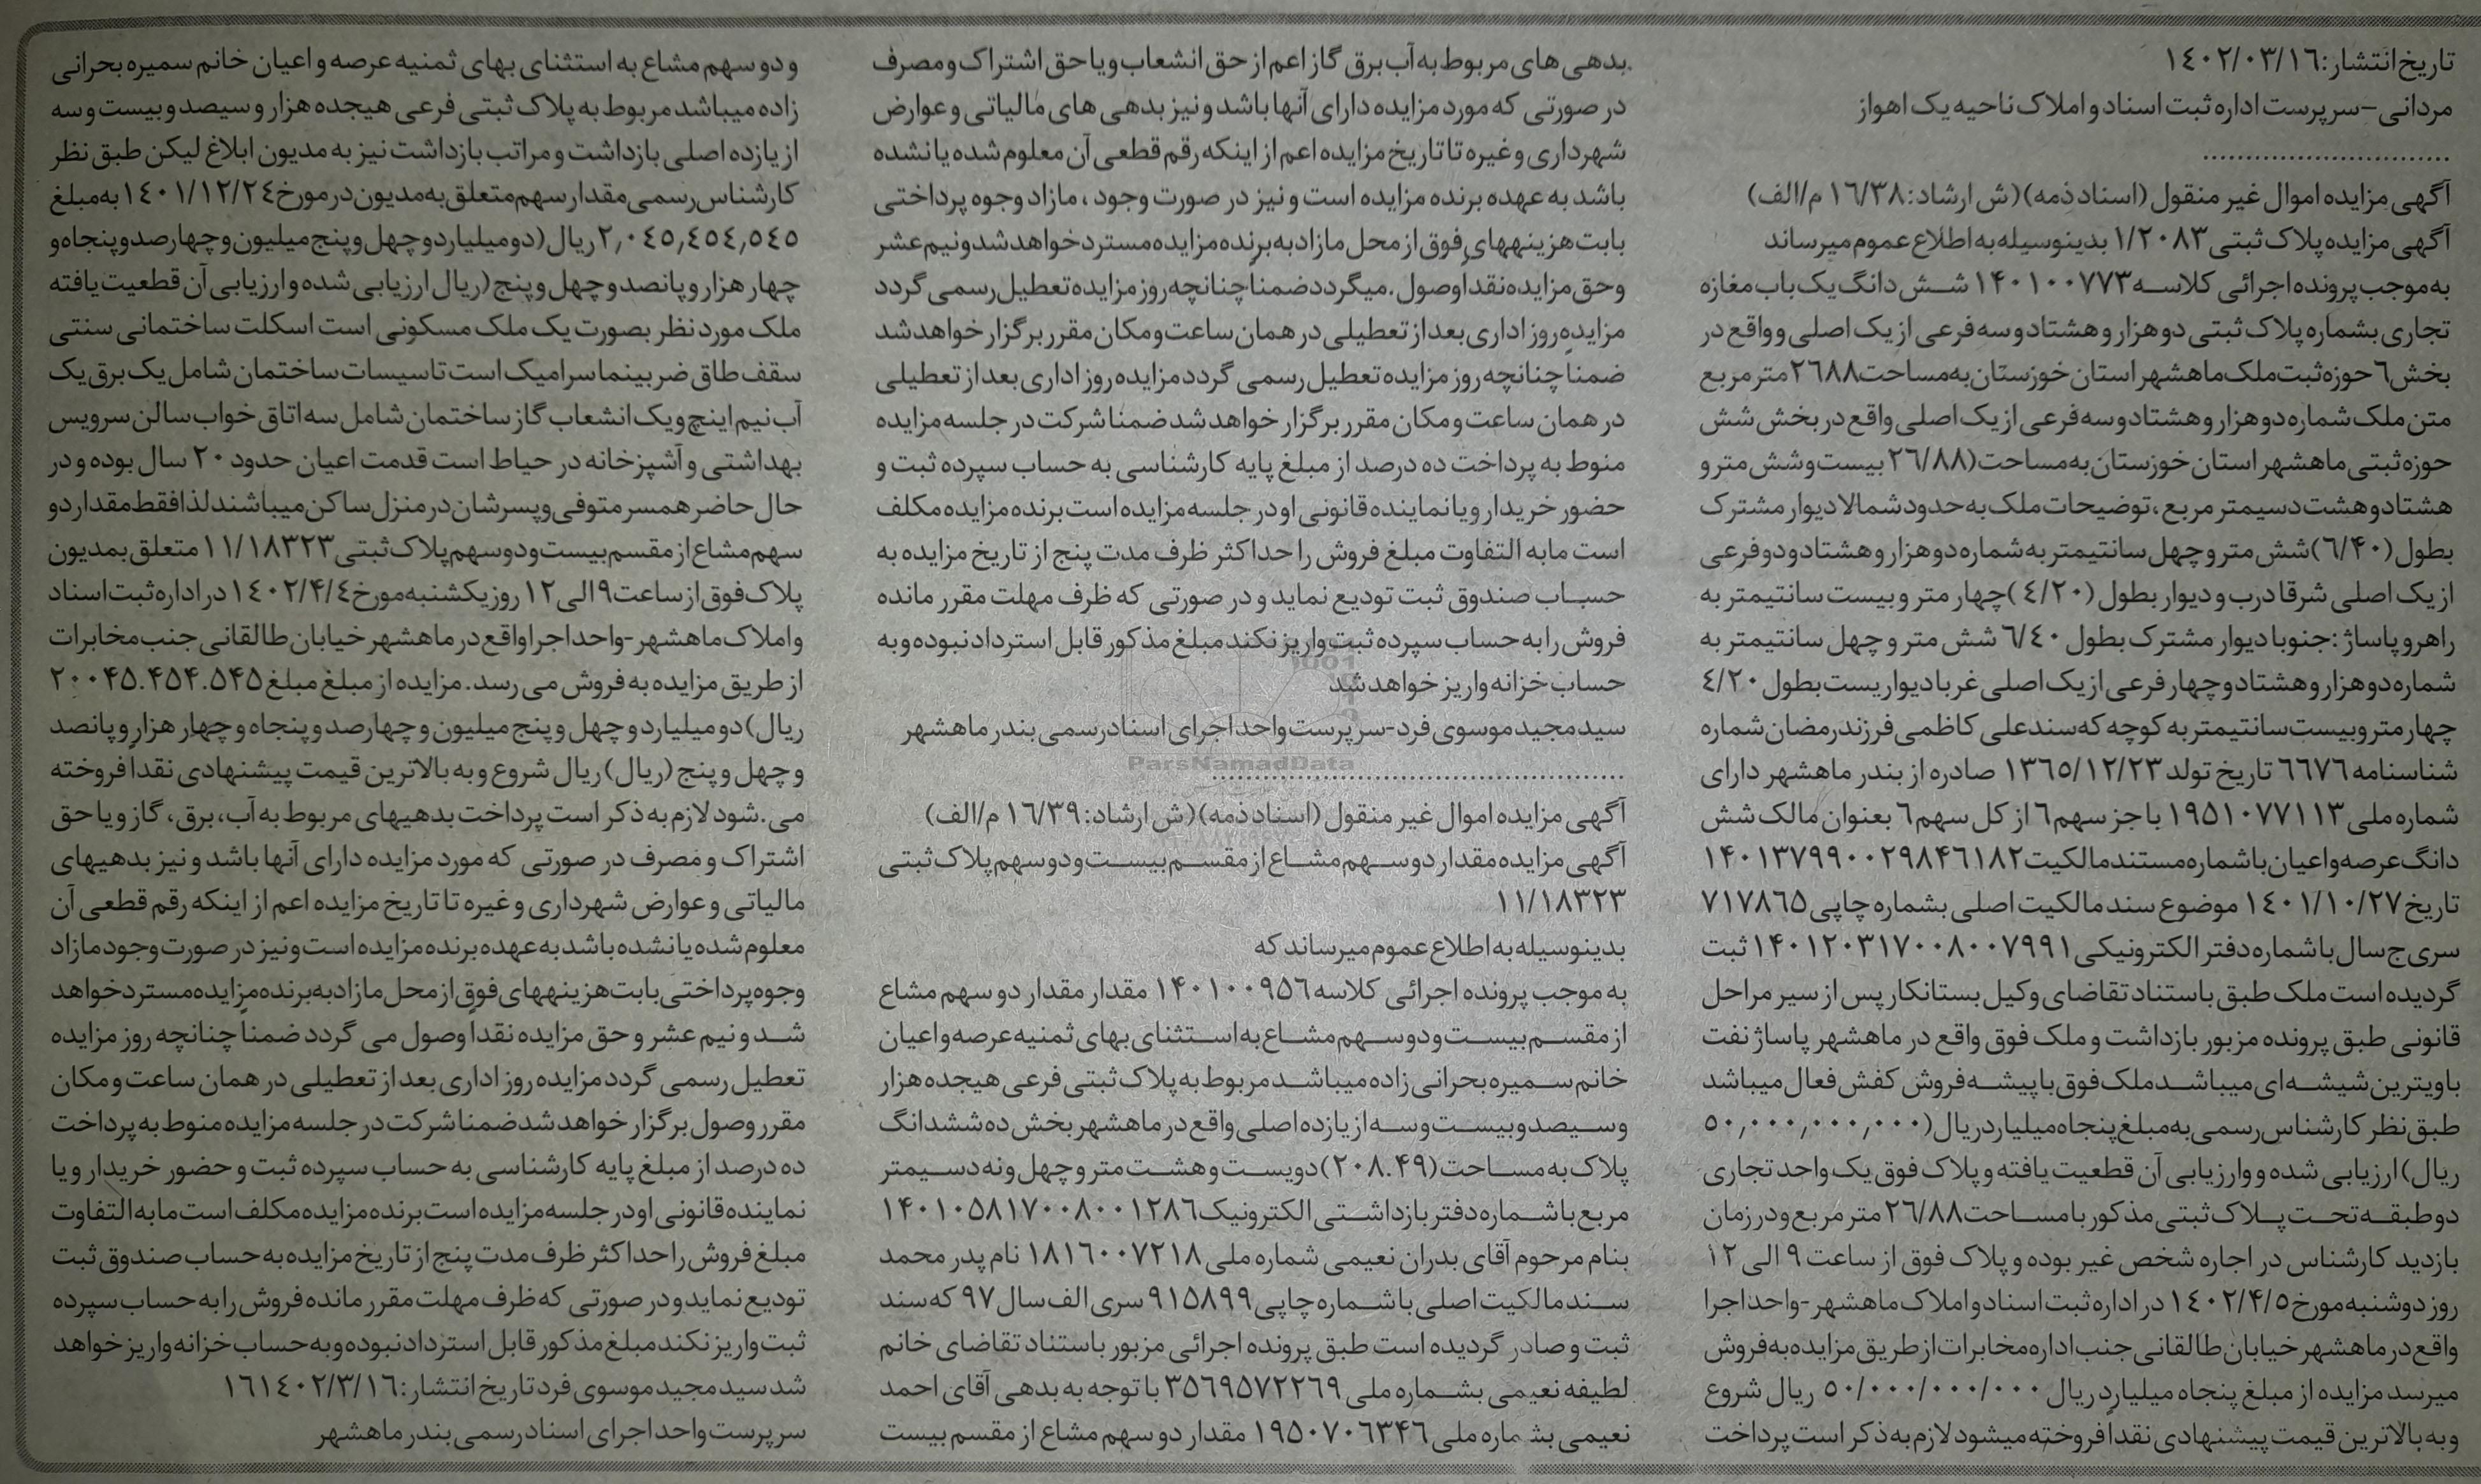 تاریخ انتشار: ۱۴۰۲/۰۳/۱۶
مردانی – سرپرست اداره ثبت اسناد و املاک ناحیه یک اهواز
............................
آگهی مزایده اموال غیر منقول (اسناد ذمه) (ش ارشاد: ۱۶/۳۸ م/الف)
آگهی مزایده پلاک ثبتی ۱/۲۰۸۳ بدینوسیله به اطلاع عموم میرساند
به موجب پرونده اجرائی کلاسه ۱۴۰۱۰۰۷۷۳ شش دانگ یک باب مغازه
تجاری بشماره پلاک ثبتی دو هزار و هشتاد و سه فرعی از یک اصلی و واقع در
بخش ۶ حوزه ثبت ملک ماهشهر استان خوزستان به مساحت ۲۶۸۸ متر مربع
متن ملک شماره دو هزار و هشتاد و سه فرعی از یک اصلی واقع در بخش شش
حوزه ثبتی ماهشهر استان خوزستان به مساحت (۲۶/۸۸ بیست وشش متر و
هشتاد و هشت دسیمتر مربع ، توضیحات ملک به حدود شمالا دیوار مشترک
بطول (۶/۴۰) شش متر و چهل سانتیمتر به شماره دو هزار و هشتاد و دو فرعی
از یک اصلی شرقا درب و دیوار بطول (۴/۲۰) چهار متر و بیست سانتیمتر به
راهرو پاساژ : جنوبا دیوار مشترک بطول ۶/۴۰ شش متر و چهل سانتیمتر به
شماره دو هزار و هشتاد و چهار فرعی از یک اصلی غربا دیواریست بطول ۴/۲۰
چهار متر و بیست سانتیمتر به کوچه که سند علی کاظمی فرزند رمضان شماره
شناسنامه ۶۶۷۶ تاریخ تولد ۱۳۶۵/۱۲/۲۳ صادره از بندر ماهشهر دارای
شماره ملی ۱۹۵۱۰۷۷۱۱۳ با جز سهم ۶ از کل سهم ۶ بعنوان مالک شش
دانگ عرصه و اعیان با شماره مستند مالکیت ۱۴۰۱۳۷۹۹۰۰۲۹۸۴۶۱۸۲
تاریخ ۱۴۰۱/۱۰/۲۷ موضوع سند مالکیت اصلی بشماره چاپی ۷۱۷۸۶۵
سری ج سال با شماره دفتر الکترونیکی ۱۴۰۱۲۰۳۱۷۰۰۸۰۰۷۹۹۱ ثبت
گردیده است ملک طبق باستناد تقاضای وکیل بستانکار پس از سیر مراحل
قانونی طبق پرونده مزبور بازداشت و ملک فوق واقع در ماهشهر پاساژ نفت
با ویترین شیشه ای میباشد ملک فوق با پیشه فروش کفش فعال میباشد
طبق نظر کارشناس رسمی به مبلغ پنجاه میلیارد ریال (۵۰,۰۰۰,۰۰۰,۰۰۰
ریال) ارزیابی شده و وارزیابی آن قطعیت یافته و پلاک فوق یک واحد تجاری
دو طبقه تحت پلاک ثبتی مذکور با مساحت ۲۶/۸۸ متر مربع و در زمان
بازدید کارشناس در اجاره شخص غیر بوده و پلاک فوق از ساعت ۹ الی ۱۲
روز دوشنبه مورخ ۱۴۰۲/۴/۵ در اداره ثبت اسناد و املاک ماهشهر -واحد اجرا
واقع در ماهشهر خیابان طالقانی جنب اداره مخابرات از طریق مزایده به فروش
میرسد مزایده از مبلغ پنجاه میلیارد ریال ۵۰/۰۰۰/۰۰۰/۰۰۰ ریال شروع
وبه بالاترین قیمت پیشنهادی نقداً فروخته میشود لازم به ذکر است پرداخت
.بدهی های مربوط به آب برق گاز اعم از حق انشعاب و یا حق اشتراک و مصرف
در صورتی که مورد مزایده دارای آنها باشد و نیز بدهی های مالیاتی و عوارض
شهرداری و غیره تا تاریخ مزایده اعم از اینکه رقم قطعی آن معلوم شده یا نشده
باشد به عهده برنده مزایده است و نیز در صورت وجود ، مازاد وجوه پرداختی
بابت هزینههای فوق از محل مازاد به برنده مزایده مسترد خواهد شد ونیم عشر
وحق مزایده نقداً وصول .میگردد ضمناً چنانچه روز مزایده تعطیل رسمی گردد
مزایده روز اداری بعد از تعطیلی در همان ساعت و مکان مقرر برگزار خواهد شد
ضمناً چنانچه روز مزایده تعطیل رسمی گردد مزایده روز اداری بعد از تعطیلی
در همان ساعت و مکان مقرر برگزار خواهد شد ضمنا شرکت در جلسه مزایده
منوط به پرداخت ده درصد از مبلغ پایه کارشناسی به حساب سپرده ثبت و
حضور خریدار و یا نماینده قانونی او در جلسه مزایده است برنده مزایده مکلف
است مابه التفاوت مبلغ فروش را حداکثر ظرف مدت پنج از تاریخ مزایده به
حساب صندوق ثبت تودیع نماید و در صورتی که ظرف مهلت مقرر مانده
فروش را به حساب سپرده ثبت واریز نکند مبلغ مذکور قابل استرداد نبوده و به
حساب خزانه واریز خواهد شد
سید مجید موسوی فرد - سرپرست واحد اجرای اسناد رسمی بندر ماهشهر
ParsNamadData
............................................
آگهی مزایده اموال غیر منقول (اسناد ذمه) (ش ارشاد: ۱۶/۳۹ م/الف)
آگهی مزایده مقدار دو سهم مشاع از مقسم بیست و دو سهم پلاک ثبتی
۱۱/۱۸۳۲۳
بدینوسیله به اطلاع عموم میرساند که
به موجب پرونده اجرائی کلاسه ۱۴۰۱۰۰۹۵۶ مقدار مقدار دو سهم مشاع
از مقسم بیست و دو سهم مشاع به استثنای بهای ثمنیه عرصه و اعیان
خانم سمیره بحرانی زاده میباشد مربوط به پلاک ثبتی فرعی هیجده هزار
وسیصد و بیست و سه از یازده اصلی واقع در ماهشهر بخش ده ششدانگ
پلاک به مساحت (۲۰۸.۴۹) دویست و هشت متر و چهل ونه دسیمتر
مربع با شماره دفتر بازداشتی الکترونیک ۱۴۰۱۰۵۸۱۷۰۰۸۰۰۱۲۸۶
بنام مرحوم آقای بدران نعیمی شماره ملی ۱۸۱۶۰۰۷۲۱۸ نام پدر محمد
سند مالکیت اصلی با شماره چاپی ۹۱۵۸۹۹ سری الف سال ۹۷ که سند
ثبت و صادر گردیده است طبق پرونده اجرائی مزبور باستناد تقاضای خانم
لطیفه نعیمی بشماره ملی ۳۵۶۹۵۷۲۲۶۹ با توجه به بدهی آقای احمد
نعیمی بشماره ملی ۱۹۵۰۷۰۶۳۴۶ مقدار دو سهم مشاع از مقسم بیست
و دو سهم مشاع به استثنای بهای ثمنیه عرصه و اعیان خانم سمیره بحرانی
زاده میباشد مربوط به پلاک ثبتی فرعی هیجده هزار و سیصد و بیست و سه
از یازده اصلی بازداشت و مراتب بازداشت نیز به مدیون ابلاغ لیکن طبق نظر
کارشناس رسمی مقدار سهم متعلق به مدیون در مورخ ۱۴۰۱/۱۲/۲۴ به مبلغ
۲,۰۴۵,۴۵۴,۵۴۵ریال (دو میلیارد و چهل و پنج میلیون و چهارصد و پنجاه و
چهار هزار و پانصد و چهل و پنج (ریال ارزیابی شده و ارزیابی آن قطعیت یافته
ملک مورد نظر بصورت یک ملک مسکونی است اسکلت ساختمانی سنتی
سقف طاق ضربینما سرامیک است تاسیسات ساختمان شامل یک برق یک
آب نیم اینچ ویک انشعاب گاز ساختمان شامل سه اتاق خواب سالن سرویس
بهداشتی و آشپزخانه در حیاط است قدمت اعیان حدود ۲۰ سال بوده و در
حال حاضر همسر متوفی و پسرشان در منزل ساکن میباشند لذا فقط مقدار دو
سهم مشاع از مقسم بیست و دو سهم پلاک ثبتی ۱۱/۱۸۳۲۳ متعلق بمدیون
پلاک فوق از ساعت ۹ الی ۱۲ روز یکشنبه مورخ ۱۴۰۲/۴/۴ در اداره ثبت اسناد
و املاک ماهشهر -واحد اجرا واقع در ماهشهر خیابان طالقانی جنب مخابرات
از طریق مزایده به فروش می رسد. مزایده از مبلغ مبلغ ۲۰۰۴۵.۴۵۴.۵۴۵
ریال) دو میلیارد و چهل و پنج میلیون و چهارصد و پنجاه و چهار هزار و پانصد
و چهل و پنج (ریال) ریال شروع و به بالاترین قیمت پیشنهادی نقداً فروخته
می.شود لازم به ذکر است پرداخت بدهیهای مربوط به آب، برق، گاز و یا حق
اشتراک و مصرف در صورتی که مورد مزایده دارای آنها باشد و نیز بدهیهای
مالیاتی و عوارض شهرداری و غیره تا تاریخ مزایده اعم از اینکه رقم قطعی آن
معلوم شده یا نشده باشد به عهده برنده مزایده است و نیز در صورت وجود مازاد
وجوه پرداختی بابت هزینههای فوق از محل مازاد به برنده مزایده مسترد خواهد
شد و نیم عشر و حق مزایده نقداً وصول می گردد ضمناً چنانچه روز مزایده
تعطیل رسمی گردد مزایده روز اداری بعد از تعطیلی در همان ساعت و مکان
مقرر وصول برگزار خواهد شد ضمنا شرکت در جلسه مزایده منوط به پرداخت
ده درصد از مبلغ پایه کارشناسی به حساب سپرده ثبت و حضور خریدار و یا
نماینده قانونی او در جلسه مزایده است برنده مزایده مکلف است مابه التفاوت
مبلغ فروش را حداکثر ظرف مدت پنج از تاریخ مزایده به حساب صندوق ثبت
تودیع نماید و در صورتی که ظرف مهلت مقرر مانده فروش را به حساب سپرده
ثبت واریز نکند مبلغ مذکور قابل استرداد نبوده و به حساب خزانه واریز خواهد
شد سید مجید موسوی فرد تاریخ انتشار: ۱۶۱۴۰۲/۳/۱۶
سرپرست واحد اجرای اسناد رسمی بندر ماهشهر